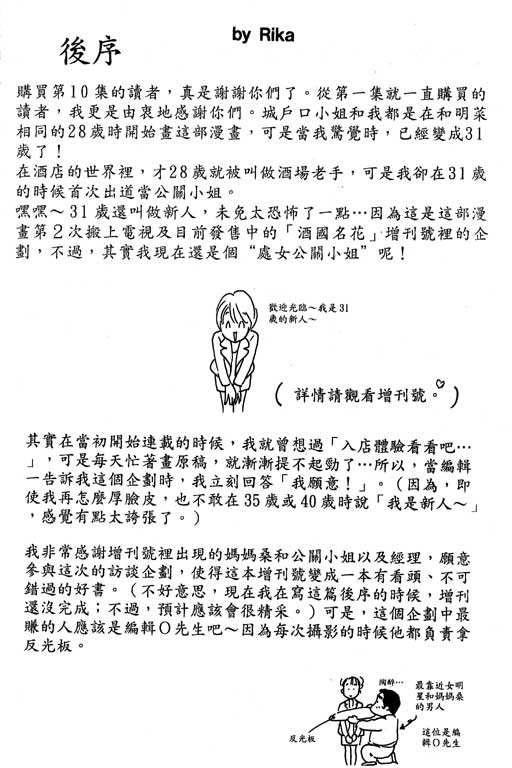 by Rika
後序
購買第10集的讀者，真是謝謝你們了。從第一集就一直購買的
讀者，我更是由衷地感謝你們。城戶口小姐和我都是在和明菜
相同的28歲時開始畫這部漫畫，可是當我驚覺時，已經變成31
歲了！
在酒店的世界裡，才28歲就被叫做酒場老手，可是我卻在31歲
的時候首次出道當公關小姐。
嘿嘿～31歲還叫做新人，未免太恐怖了一點…因為這是這部漫
畫第2次搬上電視及目前發售中的「酒國名花」增刊號裡的企
劃，不過，其實我現在還是個“處女公關小姐”呢！
歡迎光臨～我是31
歲的新人～
（詳情請觀看增刊號。）
其實在當初開始連載的時候，我就曾想過「入店體驗看看吧…
」，可是每天忙著畫原稿，就漸漸提不起勁了…所以，當編輯
一告訴我這個企劃時，我立刻回答「我願意！」。（因為，即
使我再怎麼厚臉皮，也不敢在35歲或40歲時說「我是新人～」
，感覺有點太誇張了。）
我非常感謝增刊號裡出現的媽媽桑和公關小姐以及經理，願意
參與這次的訪談企劃，使得這本增刊號變成一本有看頭、不可
錯過的好書。（不好意思，現在我在寫這篇後序的時候，增刊
還沒完成；不過，預計應該會很精采。）可是，這個企劃中最
賺的人應該是編輯O先生吧～因為每次攝影的時候他都負責拿
反光板。
陶醉…
最靠近女明
星和媽媽桑
的男人
反光板
這位是編
輯O先生